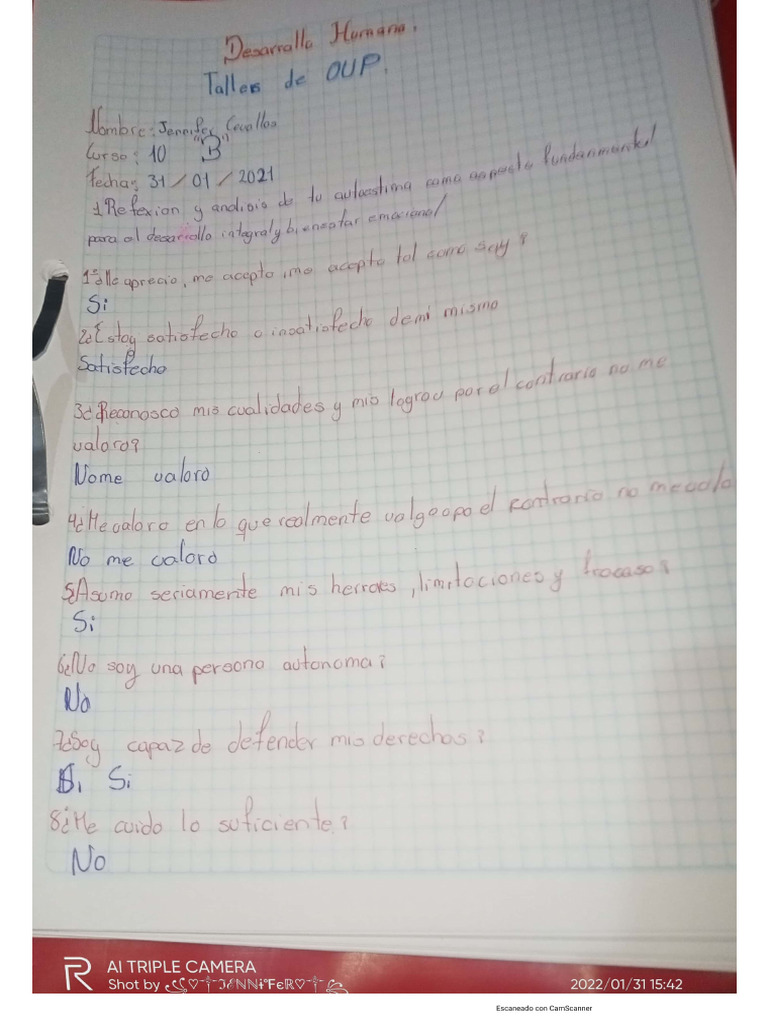 Desarrallo Humano.
Taller de OUP.
Nombre: Jennifer Cevallos
Curso: 10 "B"
Fecha: 31/01/2021
1 Reflexion y analisis de tu autoestima como aspecto fundanmental
para el desarrollo integral y bienestar emocional
1º¿Me aprecio, me acepto, me acepto tal como soy?
Si
2¿Estoy satisfecho o insatisfecho de mi mismo
Satisfecho
3¿Reconosco mis cualidades y mis logros por el contrario no me
valoro?
Nome valoro
4¿Me valoro en lo que realmente valgo opo el contrario no me valo
No me valoro
5¿Asumo seriamente mis herroes, limitaciones y fracaso?
Si
6¿No soy una persona autonoma?
No
7¿Soy capaz de defender mis derechos?
Si
8¿Me cuido lo suficiente?
No
AI TRIPLE CAMERA
Shot by JENNIFER
2022/01/31 15:42
Escaneado con CamScanner